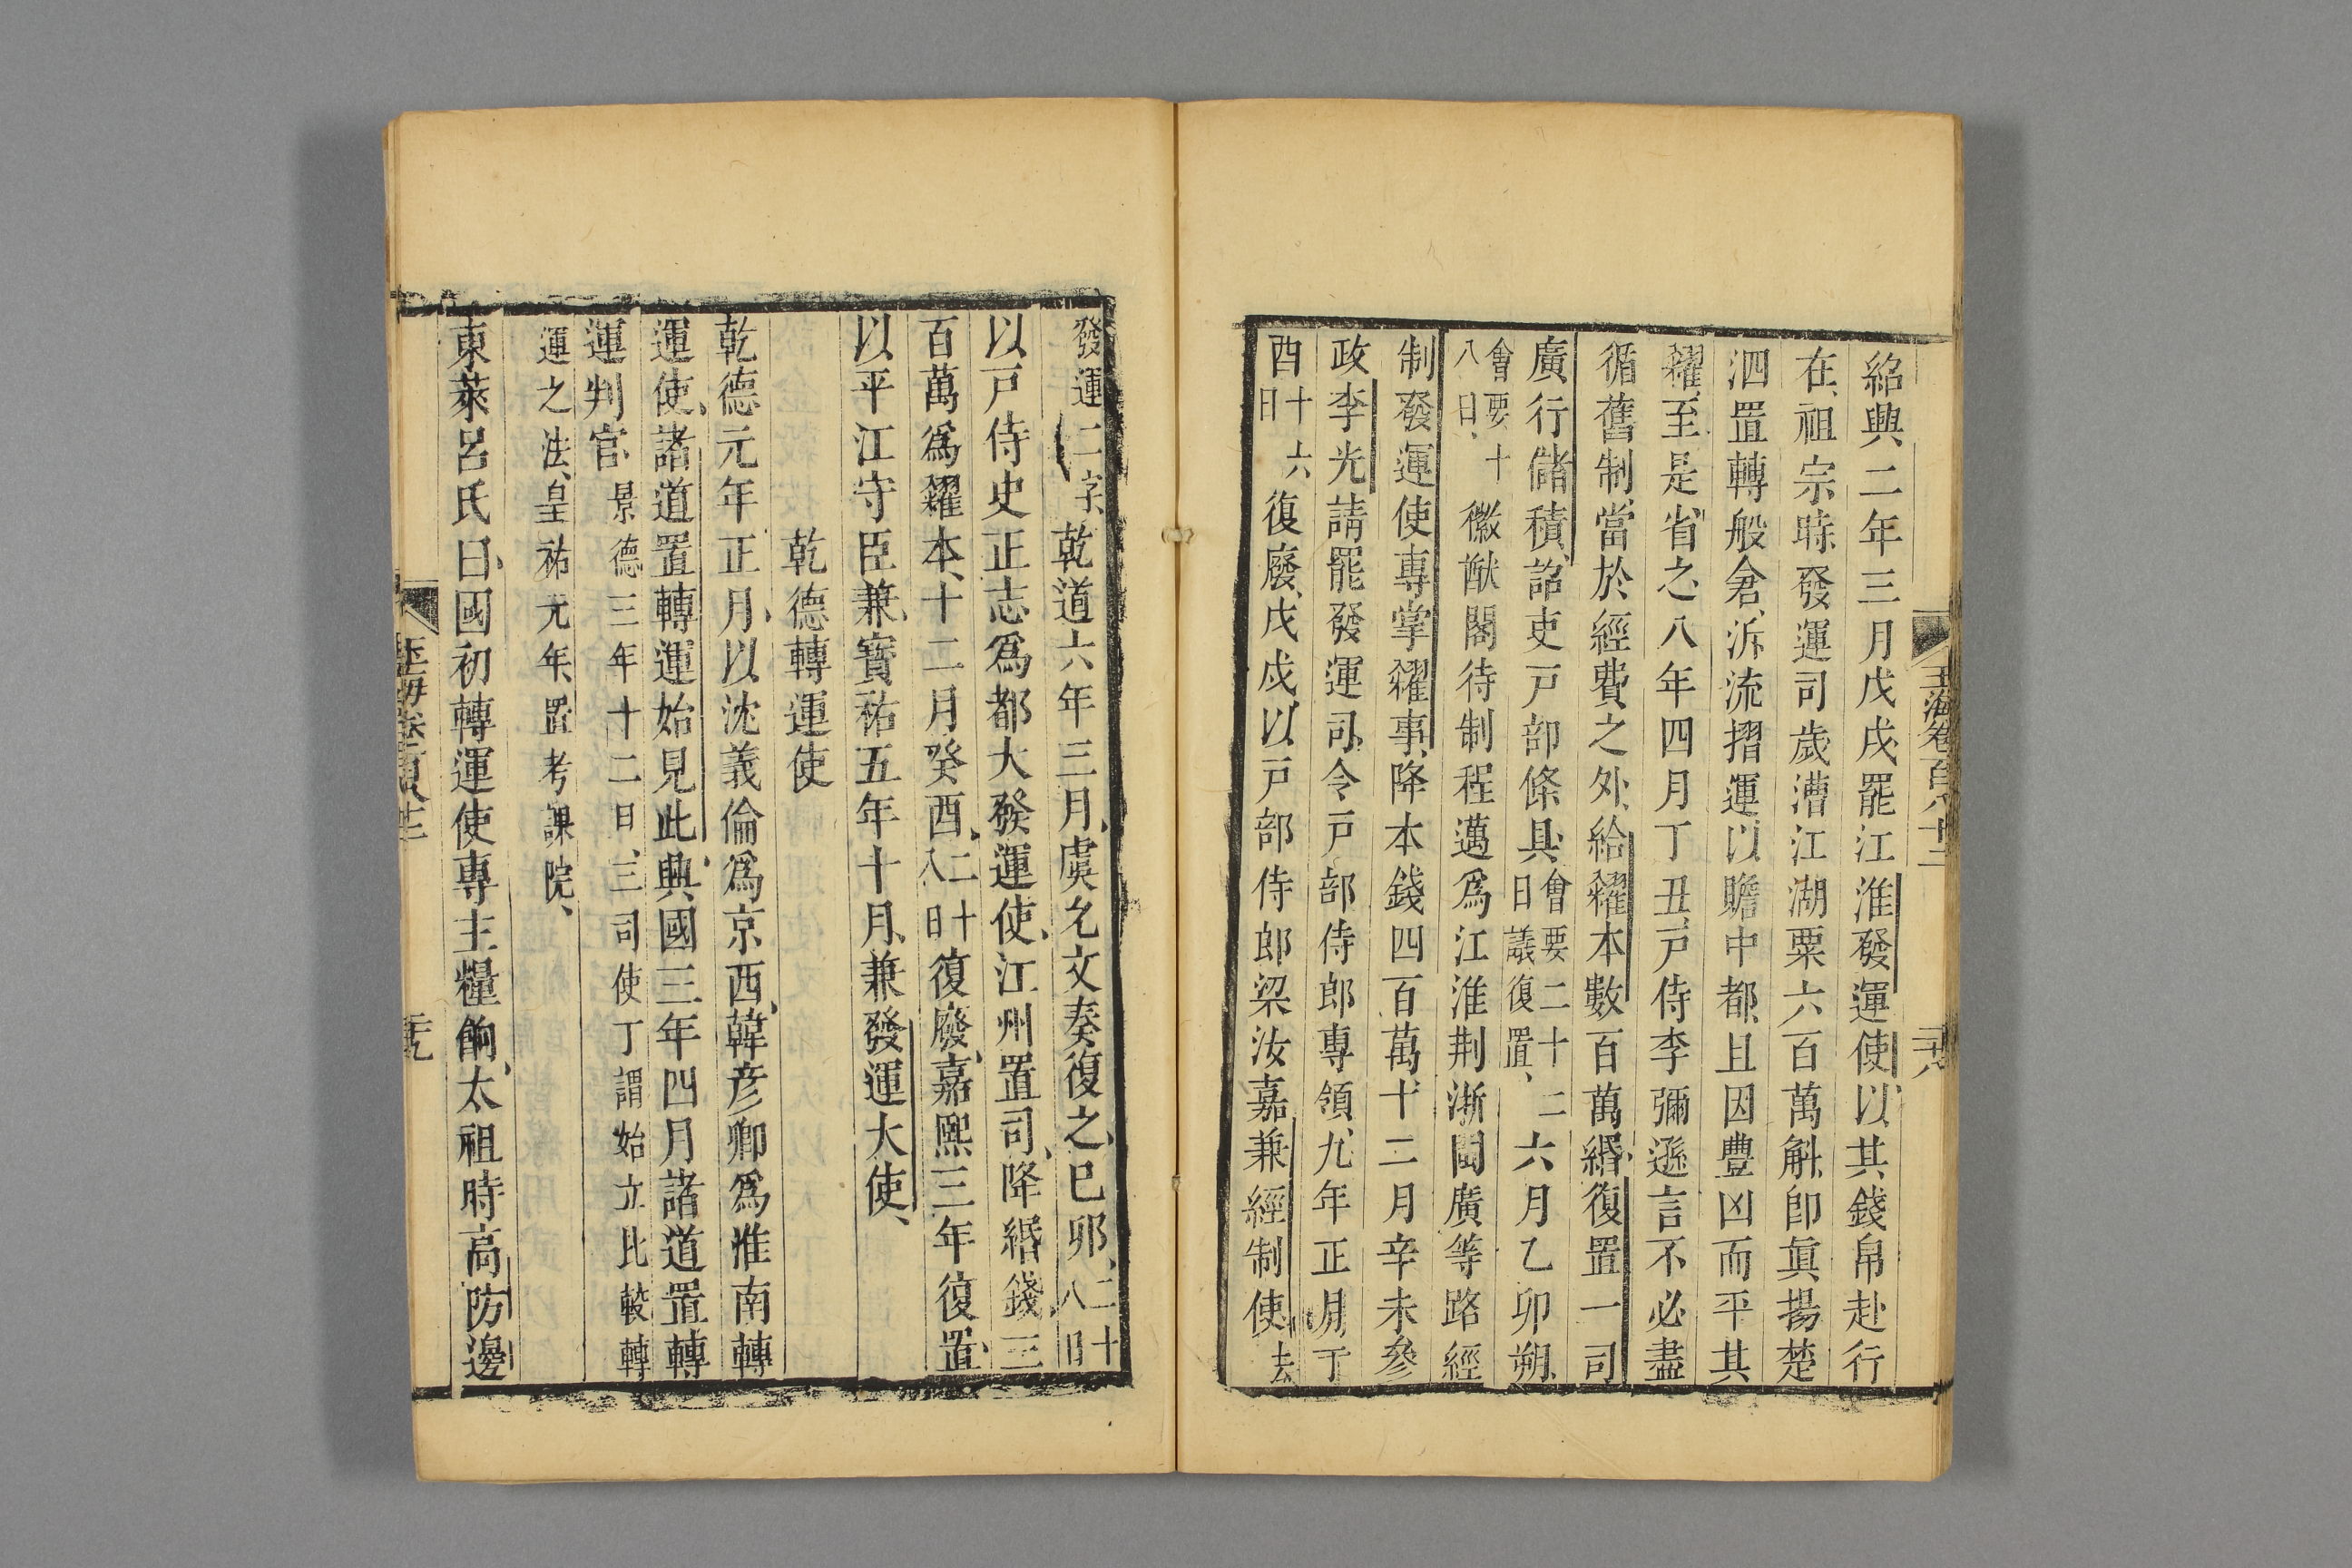 紹興二年三月戊戌、罷江淮發運使、以其錢帛赴行
在、祖宗時、發運司歲漕江湖粟六百萬斛、卽眞揚楚
泗置轉般倉、泝流摺運、以贍中都、且因豐凶而平其
糴、至是省之、八年四月丁丑、戸侍李彌遜言、不必盡
循舊制、當於經費之外、給糴本數百萬緡、復置一司
廣行儲積、詔吏戸部條具、會要二十二日議復置、六月乙卯朔、
會要十八日、徽猷閣待制程邁爲江淮荆浙閩廣等路經
制發運使、專掌糴事、降本錢四百萬、十二月辛未、參
政李光請罷發運司、令戸部侍郎專領、九年正月丁
酉十六日、復廢、戊戌、以戸部侍郎梁汝嘉兼經制使、去
發運二字、乾道六年三月、虞允文奏復之、已卯、二十八日
以戸侍史正志爲都大發運使、江州置司、降緡錢三
百萬爲糴本、十二月癸酉、二十八日復廢、嘉熙三年復置、
以平江守臣兼、寳祐五年十月、兼發運大使、
乾德轉運使
乾德元年正月、以沈義倫爲京西、韓彦卿爲淮南轉
運使、諸道置轉運始見此、興國三年四月諸道置轉
運判官、景德三年十二日、三司使丁謂始立比較轉
運之法、皇祐元年、置考課院、
東萊呂氏曰、國初轉運使專主糧餉、太祖時高防邊